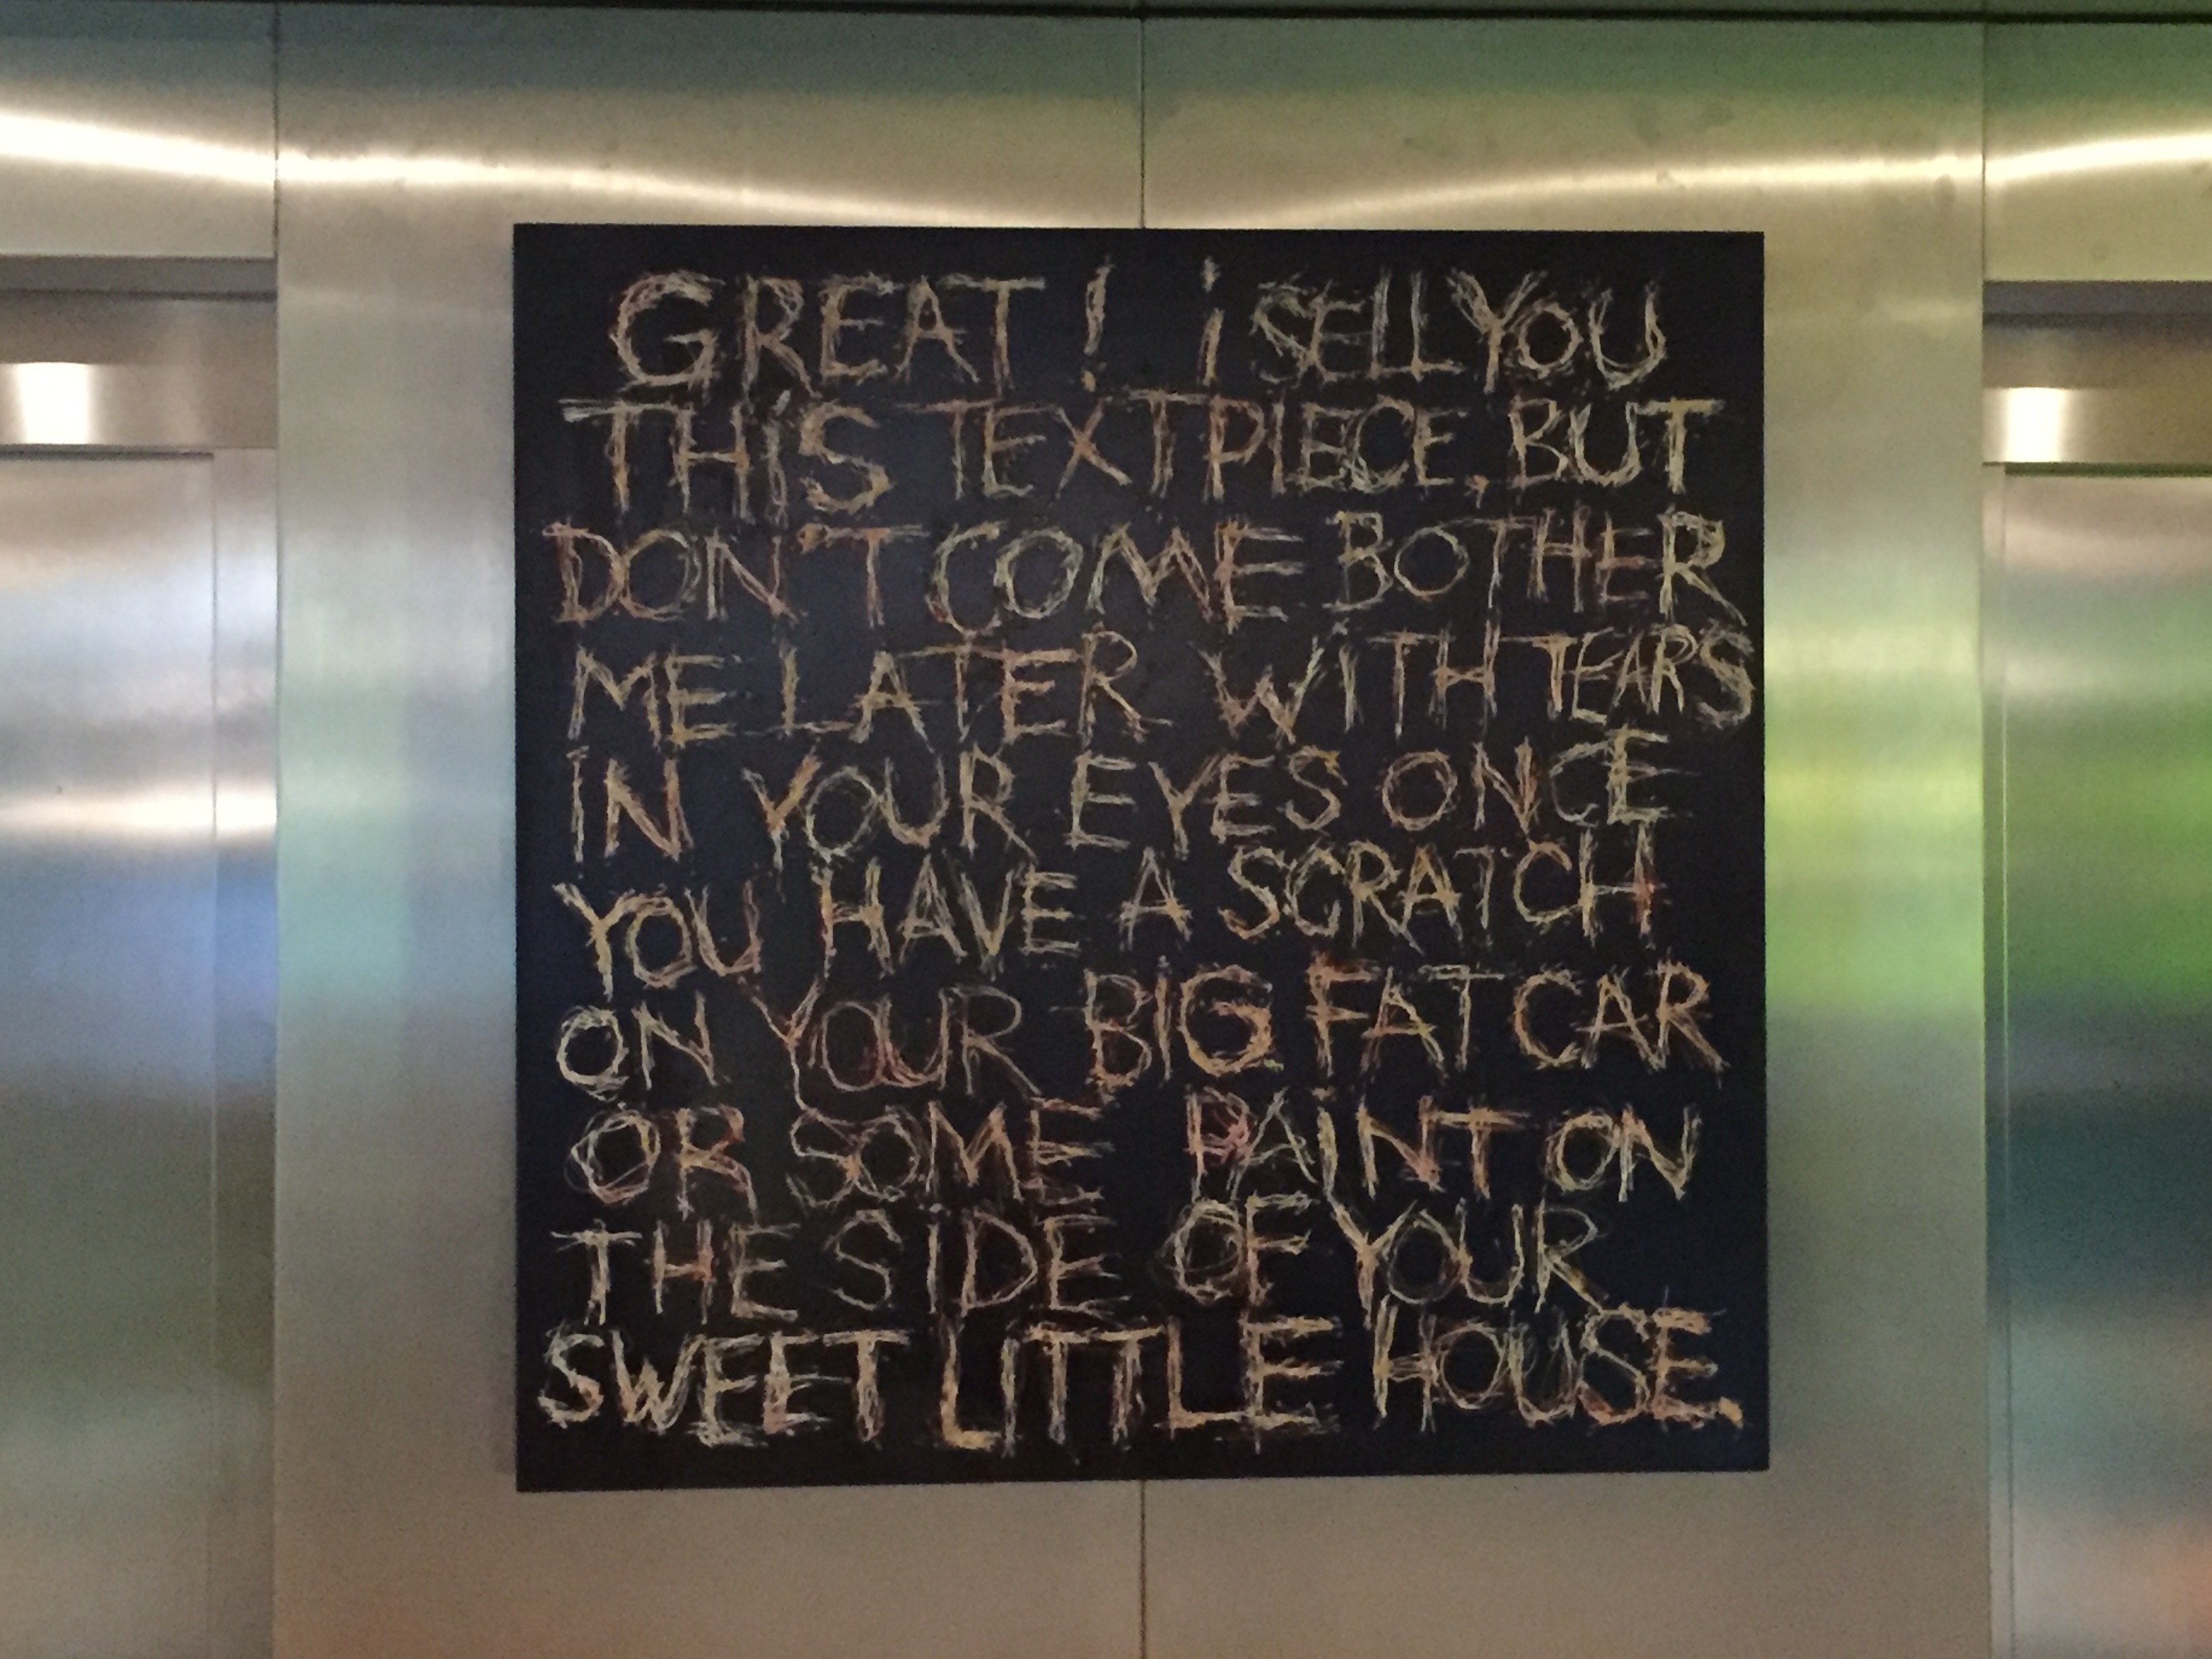 GREAT! i SELL YOU
THiS TEXTPIECE, BUT
DON'T COME BOTHER
ME LATER WiTH TEARS
IN YOUR EYES ONCE
YOU HAVE A SCRATCH
ON YOUR BIG FAT CAR
OR SOME PAiNT ON
THE SIDE OF YOUR
SWEET LITTLE HOUSE.